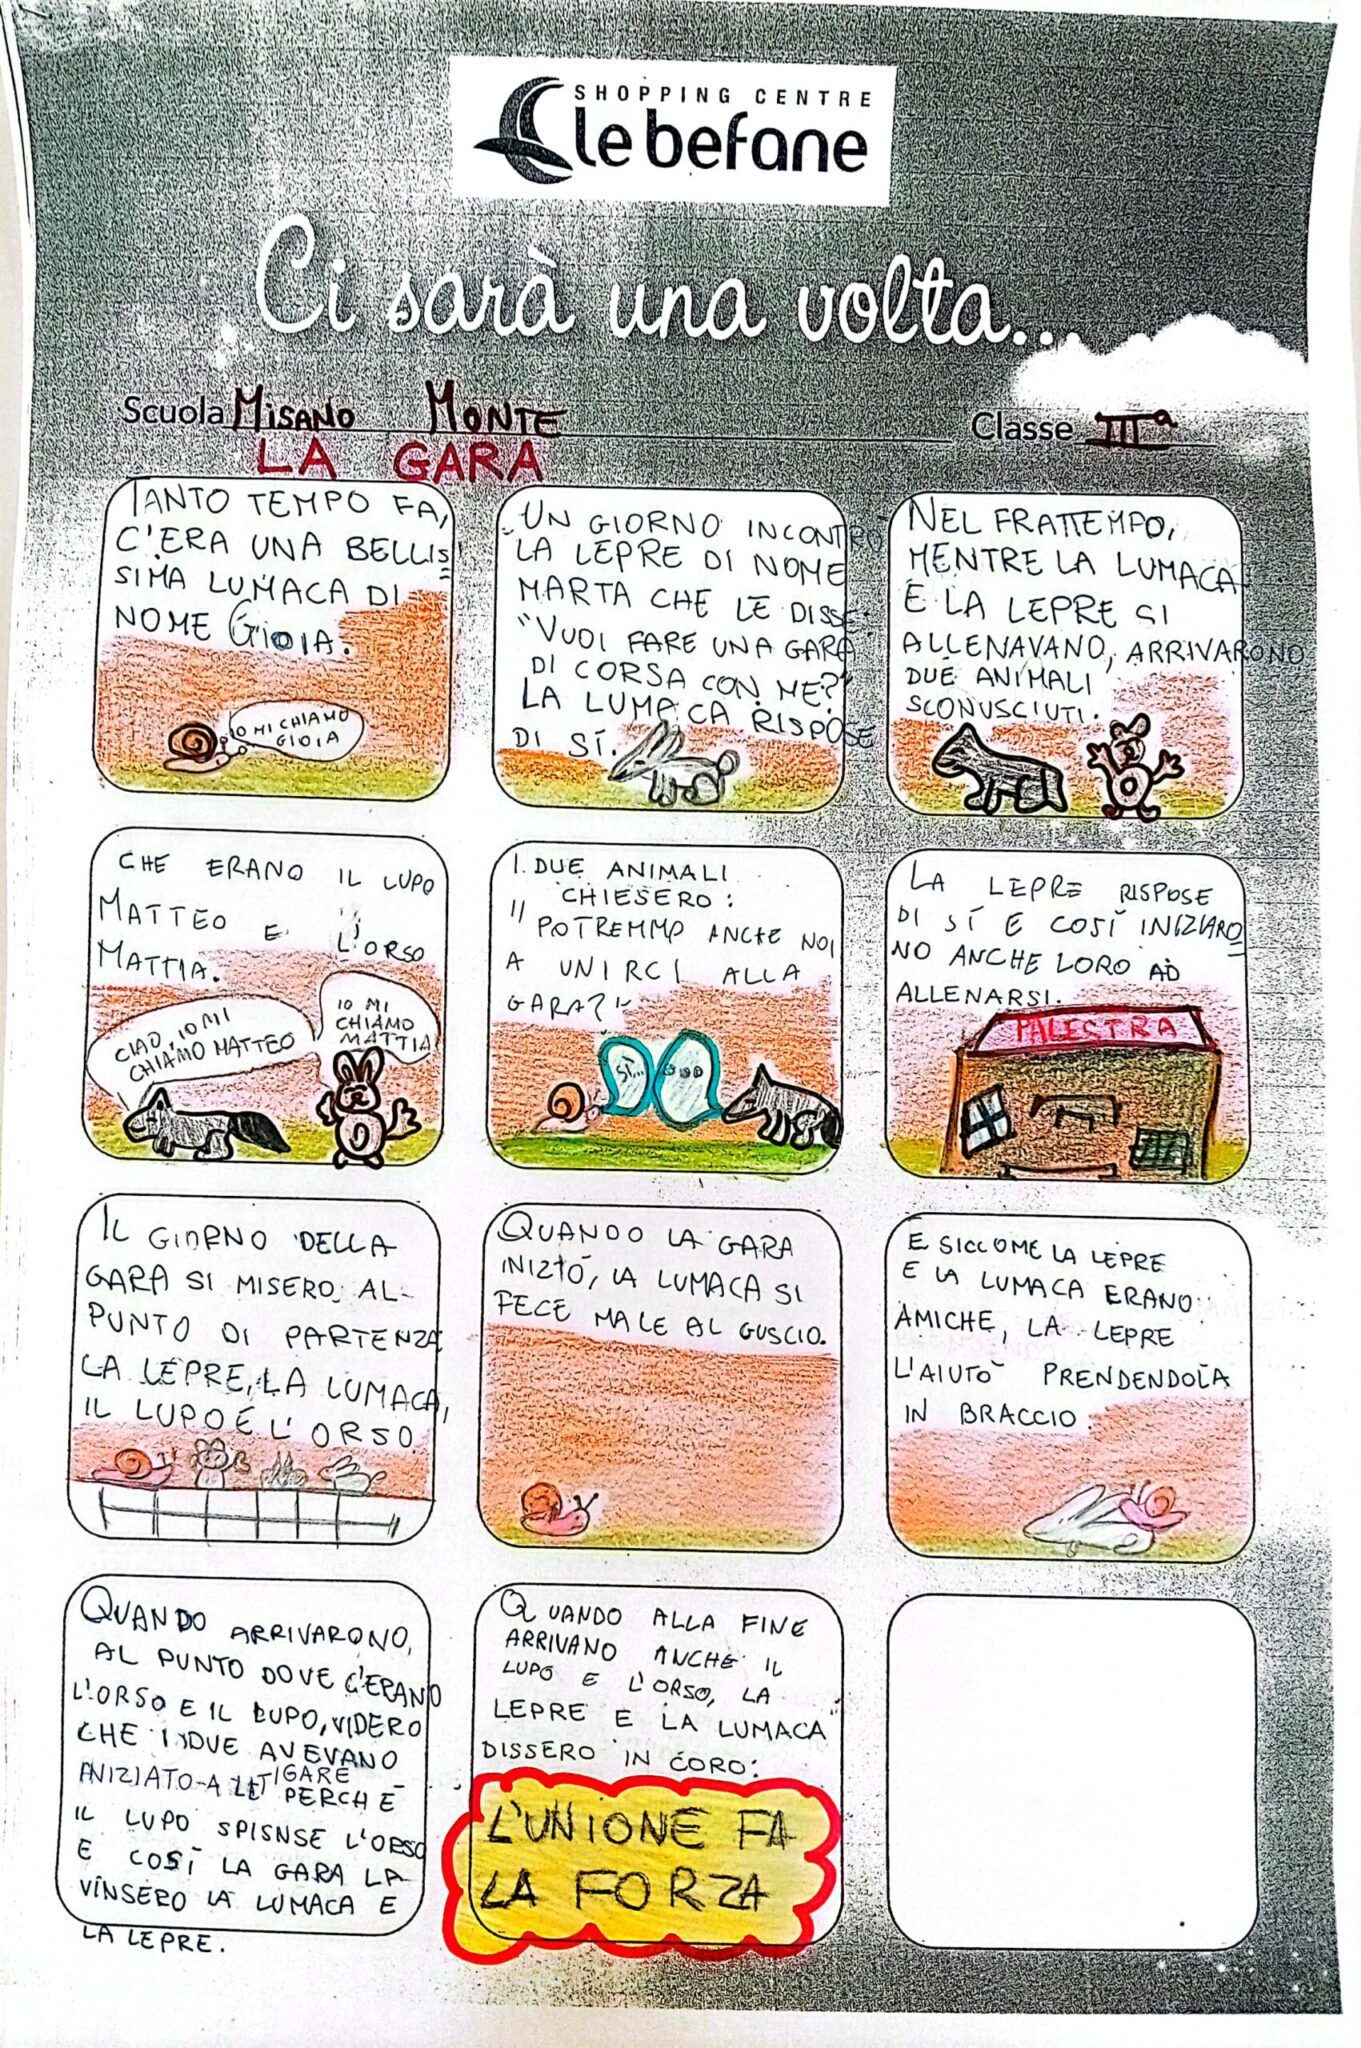 SHOPPING CENTRE
le befane
Ci sarà una volta...
Scuola MISANO MONTE
Classe IIIª
LA GARA
TANTO TEMPO FA,
C'ERA UNA BELLIS=
SIMA LUMACA DI
NOME GIOIA.
IO MI CHIAMO
GIOIA
UN GIORNO INCONTRÒ
LA LEPRE DI NOME
MARTA CHE LE DISSE:
"VUOI FARE UNA GARA
DI CORSA CON ME?"
LA LUMACA RISPOSE
DI SÍ.
NEL FRATTEMPO,
MENTRE LA LUMACA
E LA LEPRE SI
ALLENAVANO, ARRIVARONO
DUE ANIMALI
SCONUSCIUTI.
CHE ERANO IL LUPO
MATTEO E L'ORSO
MATTIA.
CIAO, IO MI
CHIAMO MATTEO
IO MI
CHIAMO
MATTIA
I DUE ANIMALI
CHIESERO:
"POTREMMO ANCHE NOI
A UNIRCI ALLA
GARA?"
SÌ...
...
LA LEPRE RISPOSE
DI SÍ E COSÍ INIZIARO=
NO ANCHE LORO AD
ALLENARSI.
PALESTRA
IL GIORNO DELLA
GARA SI MISERO AL
PUNTO DI PARTENZA
LA LEPRE, LA LUMACA,
IL LUPO E L'ORSO
QUANDO LA GARA
INIZIÓ, LA LUMACA SI
FECE MALE AL GUSCIO.
E SICCOME LA LEPRE
E LA LUMACA ERANO
AMICHE, LA LEPRE
L'AIUTÒ PRENDENDOLA
IN BRACCIO.
QUANDO ARRIVARONO,
AL PUNTO DOVE C'ERANO
L'ORSO E IL LUPO, VIDERO
CHE I DUE AVEVANO
INIZIATO A LITIGARE PERCHÈ
IL LUPO SPISNSE L'ORSO
E COSÍ LA GARA LA
VINSERO LA LUMACA E
LA LEPRE.
QUANDO ALLA FINE
ARRIVANO ANCHE IL
LUPO E L'ORSO, LA
LEPRE E LA LUMACA
DISSERO IN CORO:
L'UNIONE FA
LA FORZA